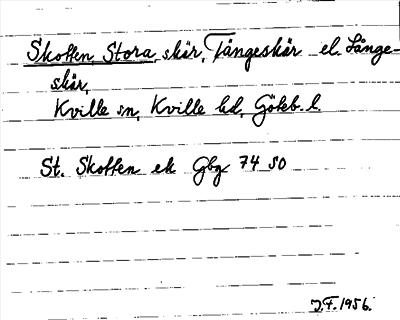 Skotten, Stora, skär, Tångeskär el. Långe-
skär,
Kville sn, Kville hd, Göteb. l.
St. Skotten ek Gbg 74 SO
J.F. 1956.